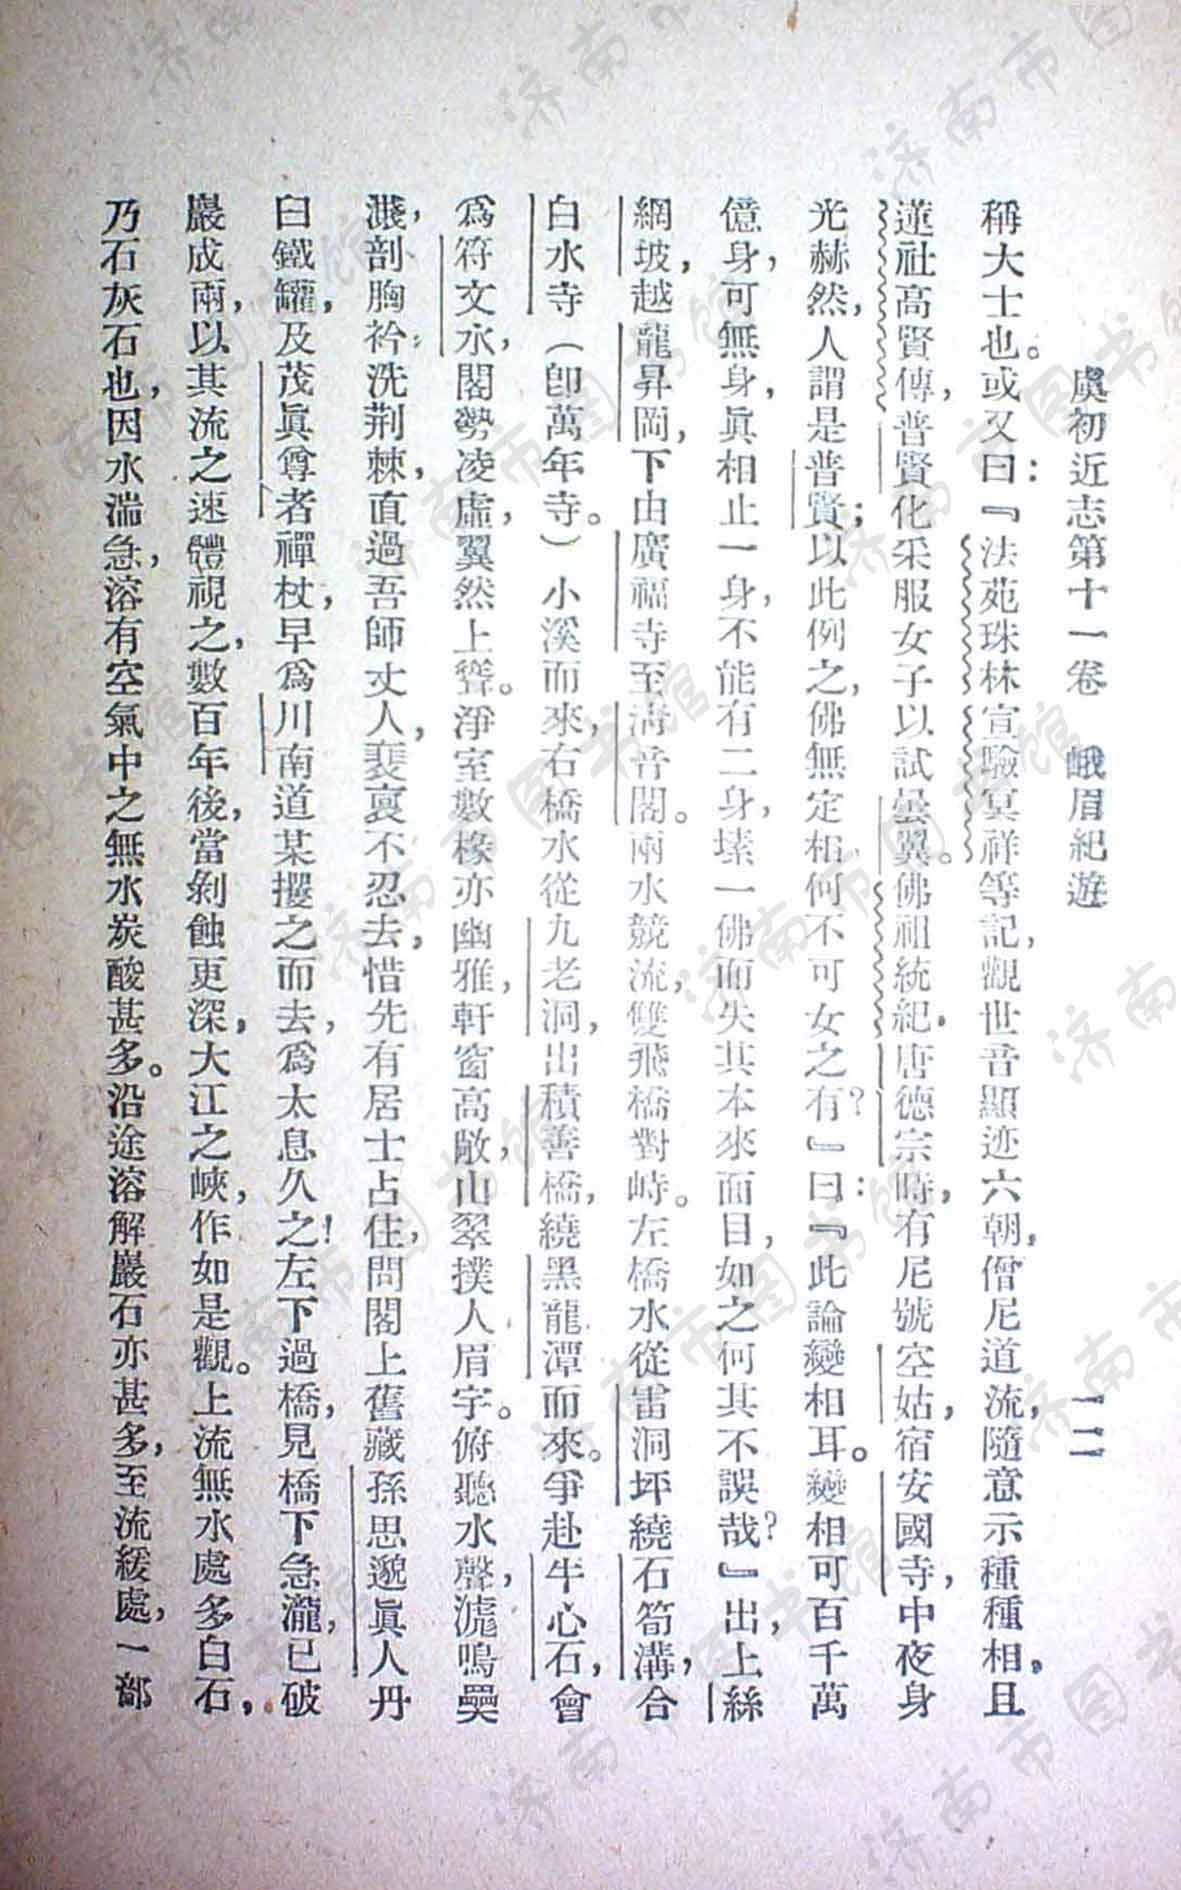 虞初近志第十一卷　峨眉紀遊　一二
稱大士也。或又曰：『法苑珠林宣驗冥祥等記，觀世音顯迹六朝，僧尼道流，隨意示種種相，且
蓮社高賢傳，普賢化采服女子以試曇翼。佛祖統紀，唐德宗時，有尼號空姑，宿安國寺，中夜身
光赫然，人謂是普賢；以此例之，佛無定相，何不可女之有？』曰：『此論變相耳。變相可百千萬
億身，可無身，眞相止一身，不能有二身，壉一佛而失其本來面目，如之何其不誤哉？』出，上絲
網坡，越龍昇岡，下由廣福寺至淸音閣。兩水競流，雙飛橋對峙。左橋水從雷洞坪繞石筍溝，合
白水寺（卽萬年寺。）小溪而來，右橋水從九老洞，出積善橋，繞黑龍潭而來。爭赴牛心石，會
爲符文水，閣勢凌虛，翼然上聳。淨室數椽亦幽雅，軒窗高敞，山翠撲人眉宇。俯聽水聲，澆鳴奰
濺，剖胸衿，洗荆棘，直過吾師丈人，裴裒不忍去，惜先有居士占住，問閣上舊藏孫思邈眞人丹
臼鐵罐，及茂眞尊者禪杖，早爲川南道某攫之而去，爲太息久之！左下過橋，見橋下急瀧，已破
巖成兩，以其流之速體視之，數百年後，當剝蝕更深，大江之峽，作如是觀。上流無水處多白石，
乃石灰石也，因水湍急，溶有空氣中之無水炭酸甚多。沿途溶解巖石亦甚多，至流緩處，一部
济南市图书馆